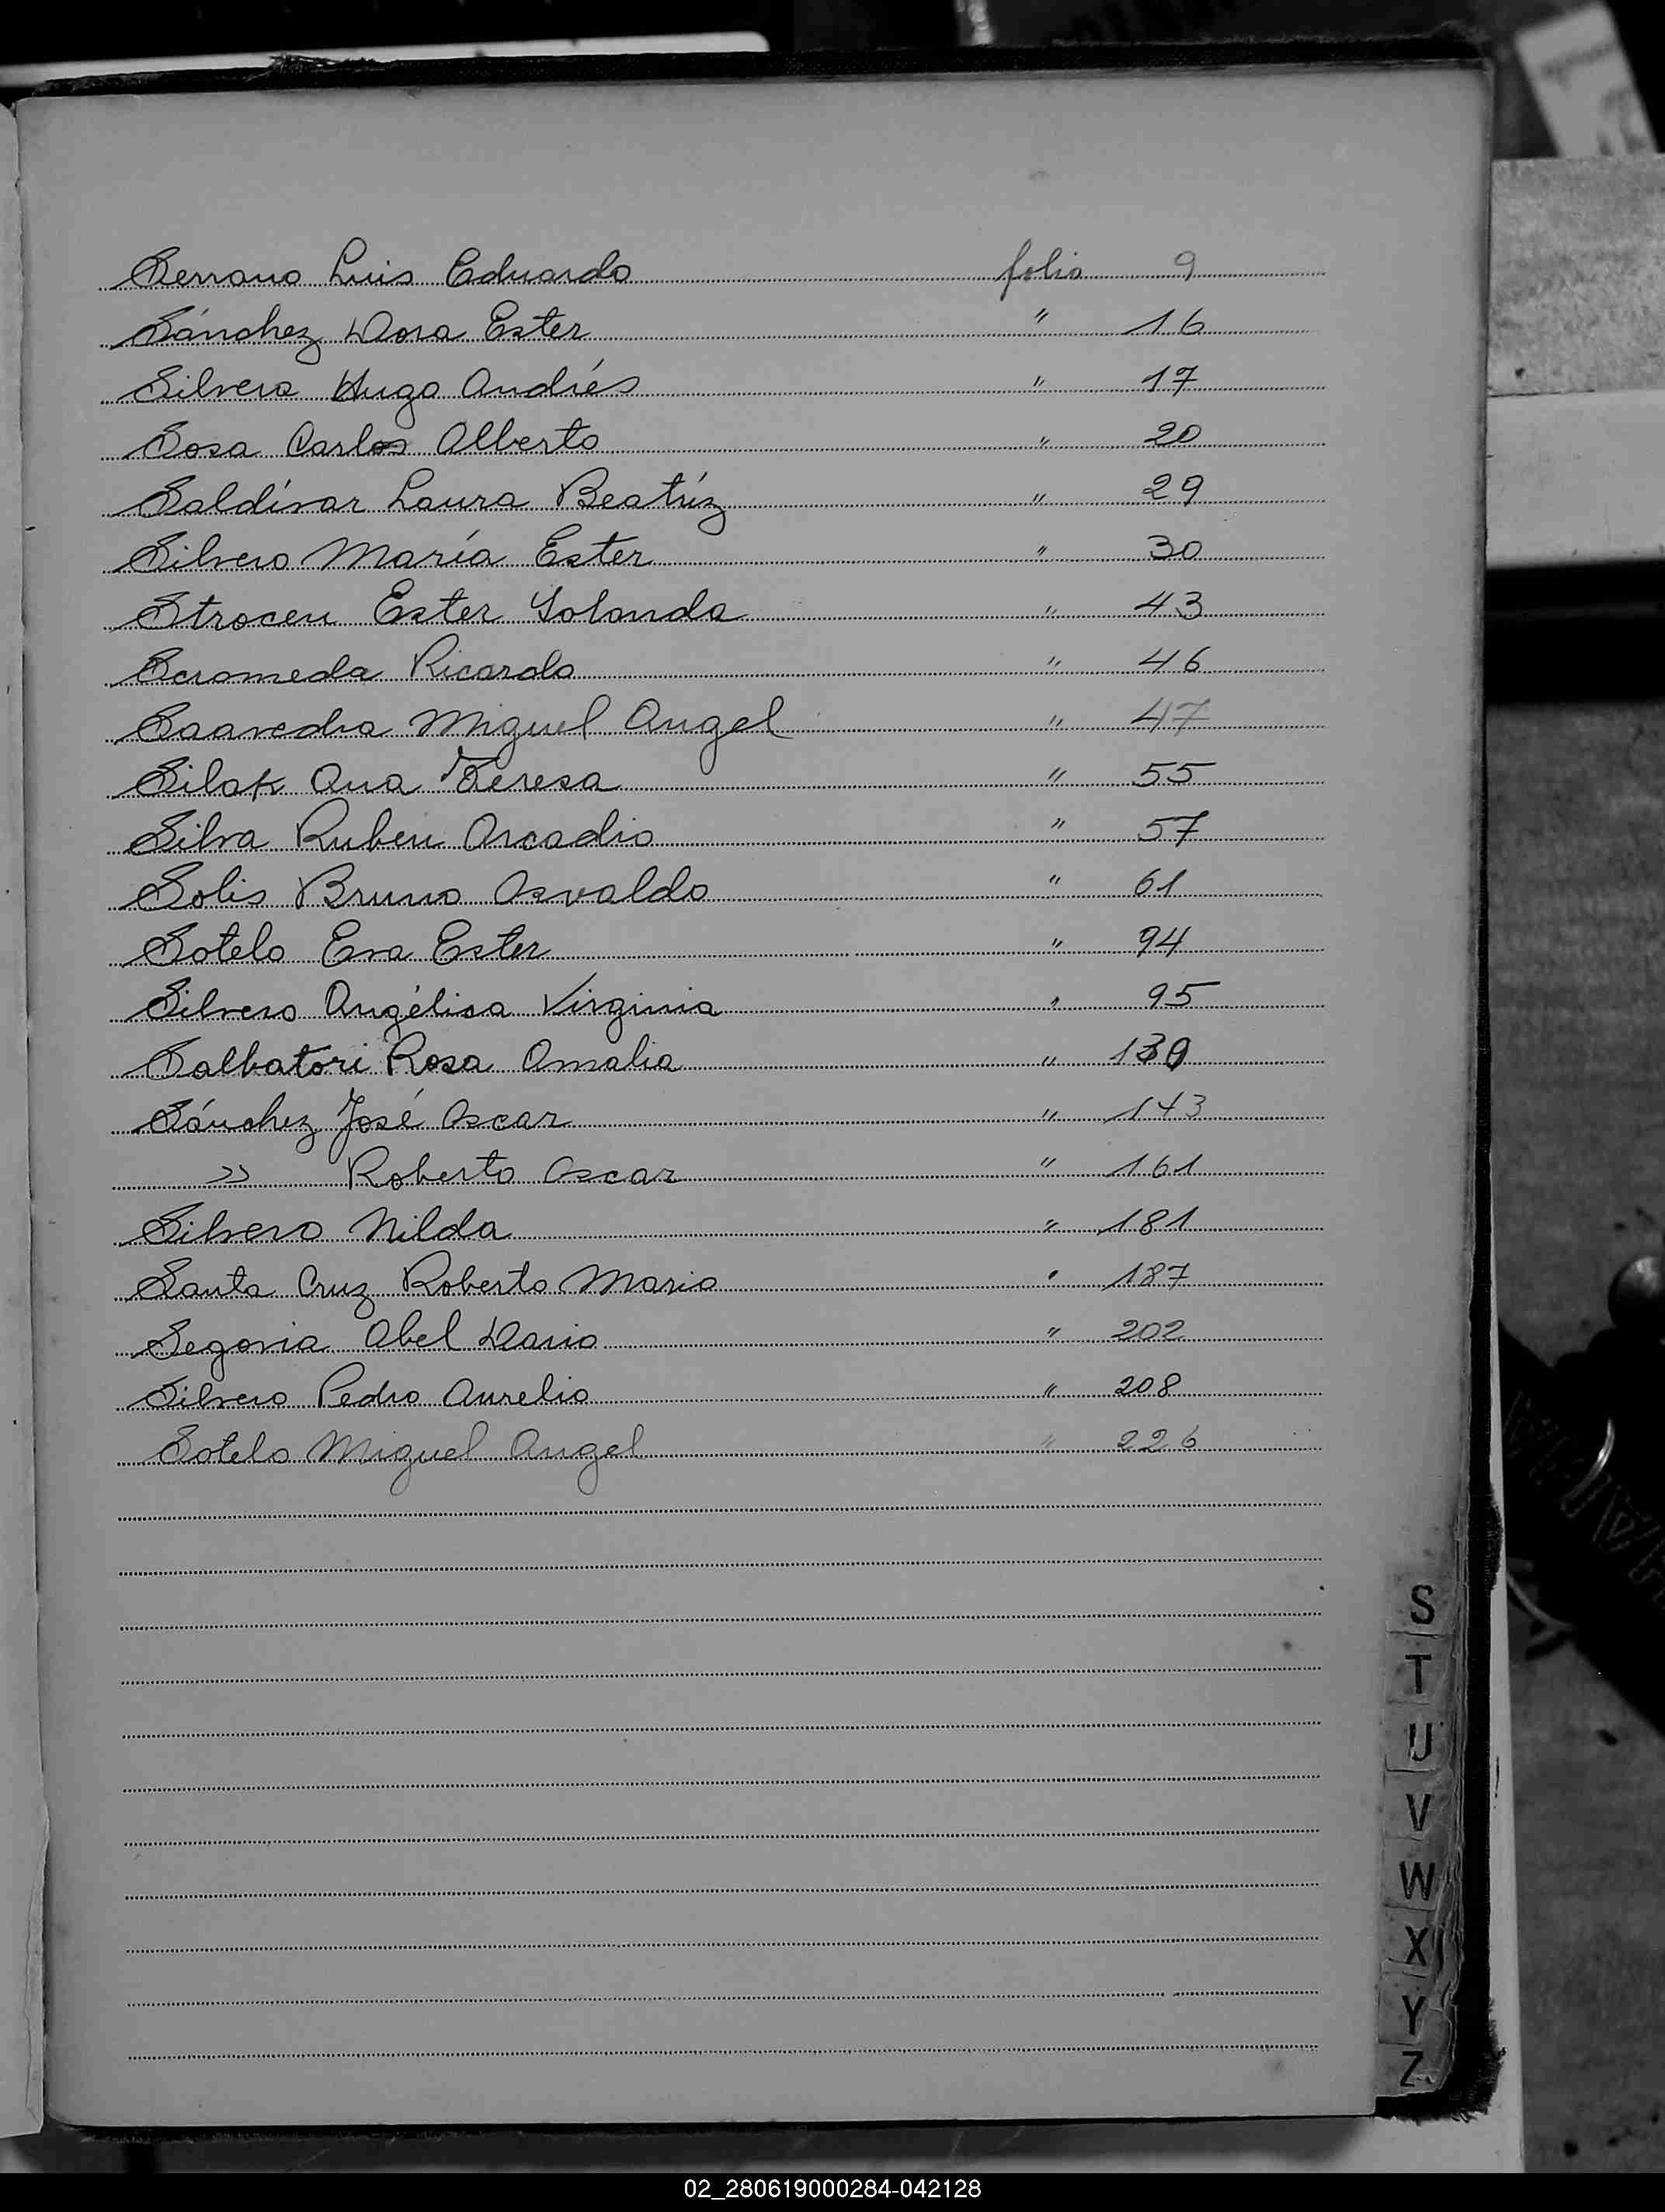 Serrano Luis Eduardo folio 9
Sánchez Dora Ester " 16
Silvera Hugo Andrés " 17
Sosa Carlos Alberto " 20
Saldívar Laura Beatríz " 29
Silvero María Ester " 30
Stroceu Ester Yolanda " 43
Scromeda Ricardo " 46
Saavedra Miguel Angel " 47
Silak Ana Teresa " 55
Silva Ruben Arcadio " 57
Solis Bruno Osvaldo " 61
Sotelo Eva Ester " 94
Silvero Angélica Virginia " 95
Salbatori Rosa Amalia " 139
Sánchez José Oscar " 143
" Roberto Oscar " 161
Silvero Nilda " 181
Santa Cruz Roberto Mario " 187
Segovia Abel Dario " 202
Silvero Pedro Aurelio " 208
Sotelo Miguel Angel " 226
S
T
U
V
W
X
Y
Z
02_280619000284-042128